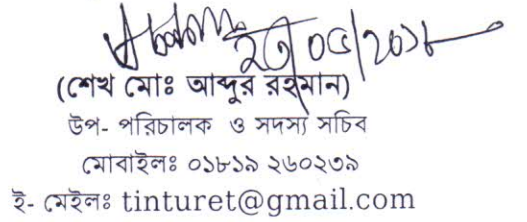 ২০/০৫/২০১৮
(শেখ মোঃ আব্দুর রহমান)
উপ- পরিচালক ও সদস্য সচিব
মোবাইলঃ ০১৮১৯ ২৬০২৩৯
ই- মেইলঃ tinturet@gmail.com